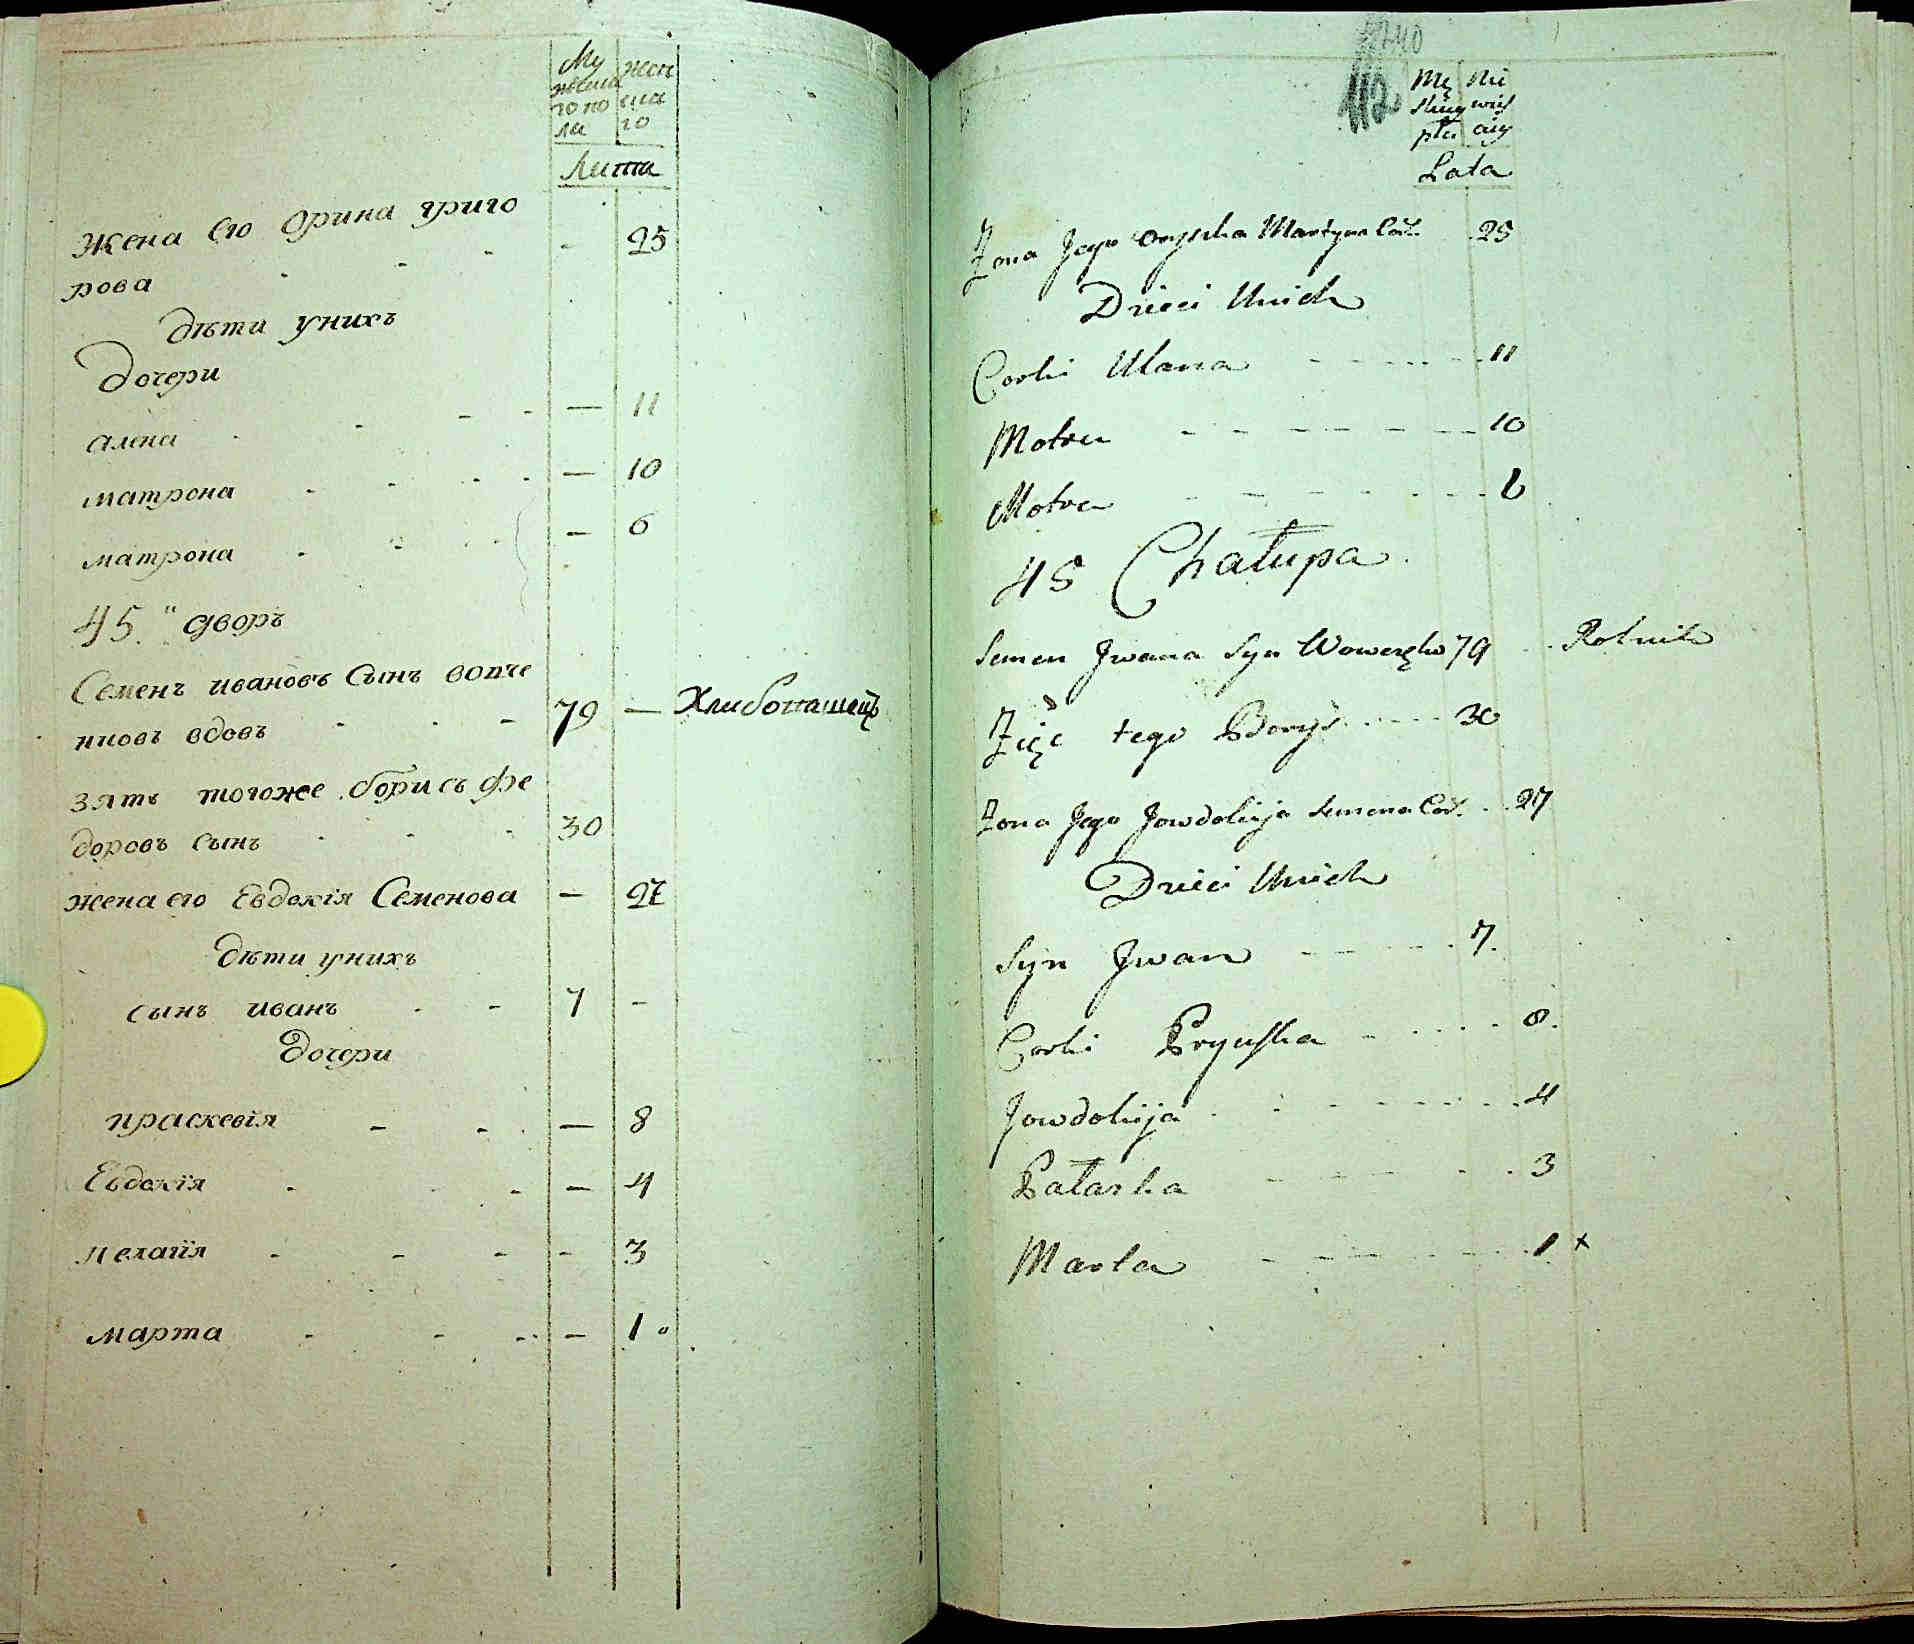 Му
жеска
го по
ла
жен
ска
го
Лита
Жена Его Орина григо
рова - - - - 25
дѣти унихъ
Дочери
алена - - - — 11
матрона - - - - — 10
матрона - - - — 6
45." дворъ
Семенъ ивановъ Сынъ
нновъ вдовъ - - - 79 — Хлибопашецъ
зять тогоже борисъ фе
доровъ сынъ - - - 30
жена его Евдокія Семенова — 27
дѣти унихъ
сынъ иванъ - - 7 -
Дочери
праскевія - - - — 8
Евдокія - - - — 4
пелагія - - - - 3
марта - - - — 1
112
Mę
skiey
płci
Nie
wieś
ciey
Lata
Żona Jego Oryszka Martyna Cór. 25
Dzieci Unich
Corki Ulana - - - - - - 11
Motra - - - - - - - 10
Motra - - - - - - 6
45 Chałupa
Semen Jwana Syn 79 - - Rolnik
Zięć tego Borys - - - - 30
Żona Jego Jowdokija Semena Cór. - - 27
Dzieci Unich
Syn Jwan - - - - - 7.
Corki Pryska - - - - - 8.
Jowdokija - - - - - - - 4
Pałaska - - - - - 3
Marta - - - - - - 1 x